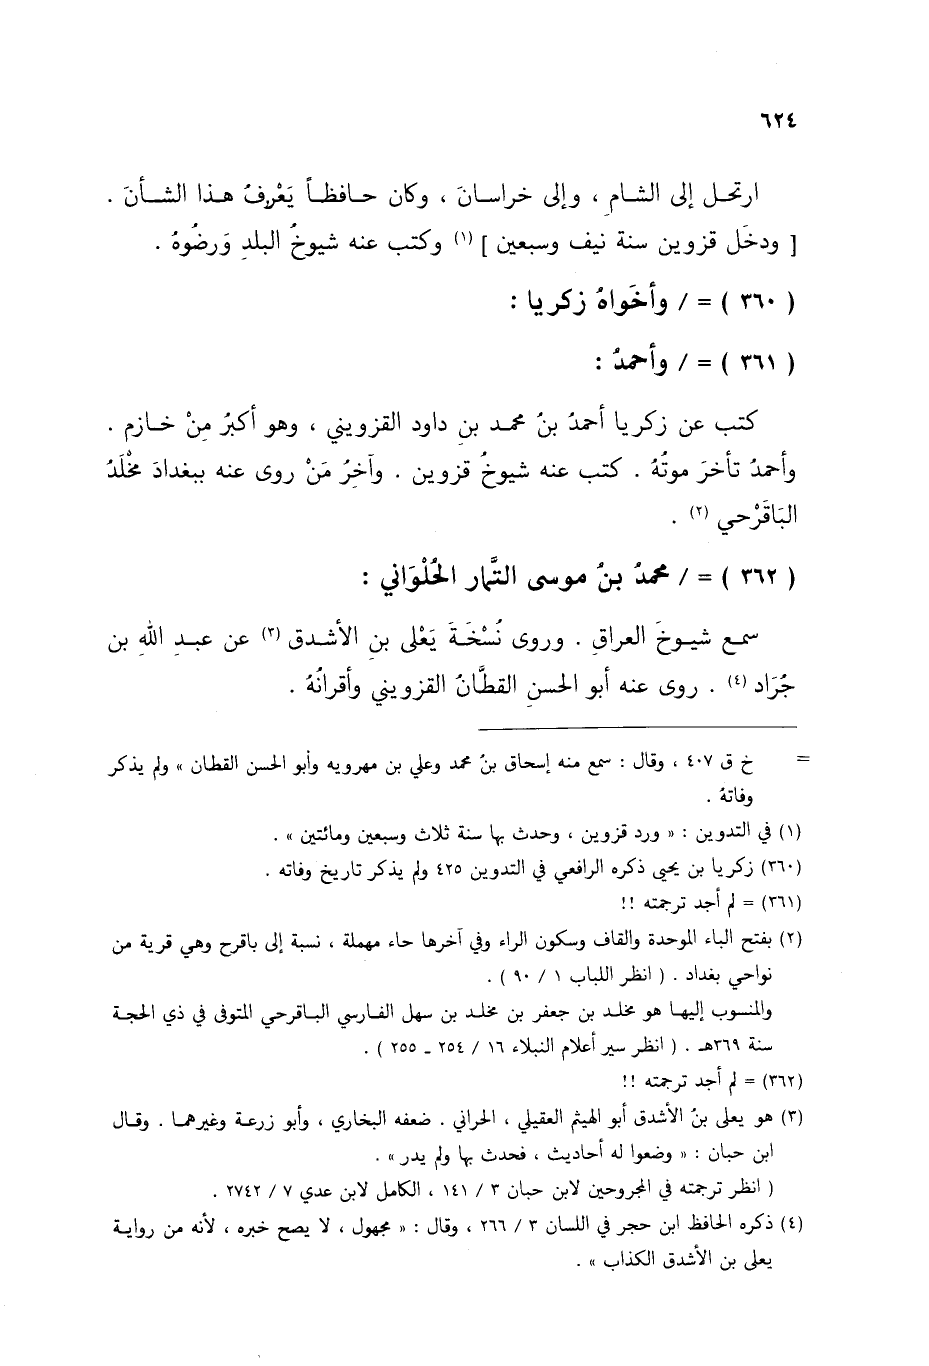 ٦٢٤
ارتحـل إلى الشـام ، وإلى خراسـانَ ، وكان حـافظـاً يَعْرِفُ هـذا الشـأنَ .
[ ودخَل قزوين سنة نيف وسبعين ] (١) وكتب عنه شيوخُ البلدِ وَرضُوهُ .
( ٣٦٠ ) = / وأخَواهُ زكريا :
( ٣٦١ ) = / وأحمدُ :
كتب عن زكريا أحمدُ بنُ محمـد بنِ داود القزويني ، وهو أكبرُ مِنْ خـازم .
وأحمدُ تأخرَ موتُهُ . كتب عنه شيوخُ قزوين . وآخِرُ مَنْ روى عنه ببغدادَ مخْلَدُ
البَاقَرْحي (٢) .
( ٣٦٢ ) = / محمدُ بنُ موسى التَّمار الحُلْوَاني :
سمـع شيـوخَ العراقِ . وروى نُسْخَـةَ يَعْلى بنِ الأشـدق (٣) عن عبـدِ اللهِ بن
جُرَاد (٤) . روى عنه أبو الحسنِ القطَّانُ القزويني وأقرانُهُ .
= خ ق ٤٠٧ ، وقال : سمع منه إسحاق بنُ محمد وعلي بن مهرويه وأبو الحسن القطان » ولم يذكر
وفاتهُ .
(١) في التدوين : « ورد قزوين ، وحدث بها سنة ثلاث وسبعين ومائتين » .
(٣٦٠) زكريا بن يحيى ذكره الرافعي في التدوين ٤٢٥ ولم يذكر تاريخ وفاته .
(٣٦١) = لم أجد ترجمته !!
(٢) بفتح الباء الموحدة والقاف وسكون الراء وفي آخرها حاء مهملة ، نسبة إلى باقرح وهي قرية من
نواحي بغداد . ( انظر اللباب ١ / ٩٠ ) .
والمنسـوب إليهـا هو مخلـد بن جعفر بن مخلـد بن سهل الفـارسي البـاقرحي المتوفى في ذي الحجـة
سنة ٣٦٩هـ . ( انظر سير أعلام النبلاء ١٦ / ٢٥٤ ـ ٢٥٥ ) .
(٣٦٢) = لم أجد ترجمته !!
(٣) هو يعلى بنُ الأشدق أبو الهيثم العقيلي ، الحراني . ضعفه البخاري ، وأبو زرعـة وغيرهمـا . وقـال
ابن حبان : « وضعوا له أحاديث ، فحدث بها ولم يدر » .
( انظر ترجمته في المجروحين لابن حبان ٣ / ١٤١ ، الكامل لابن عدي ٧ / ٢٧٤٢ .
(٤) ذكره الحافظ ابن حجر في اللسان ٣ / ٢٦٦ ، وقال : « مجهول ، لا يصح خبره ، لأنه من روايـة
يعلى بن الأشدق الكذاب » .